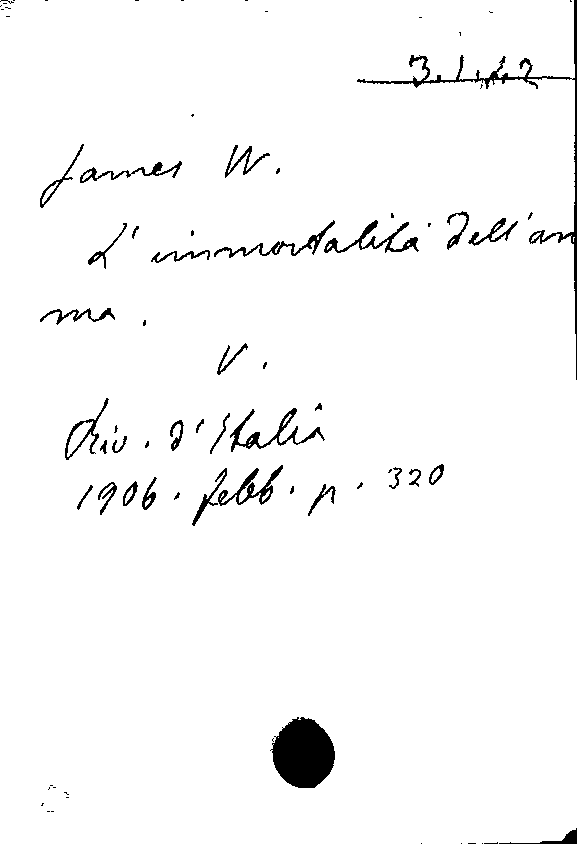 3.1.
James W.
L'immortalità dell'an
ma.
V.
Riv. d'Italia
1906. febb. p. 320